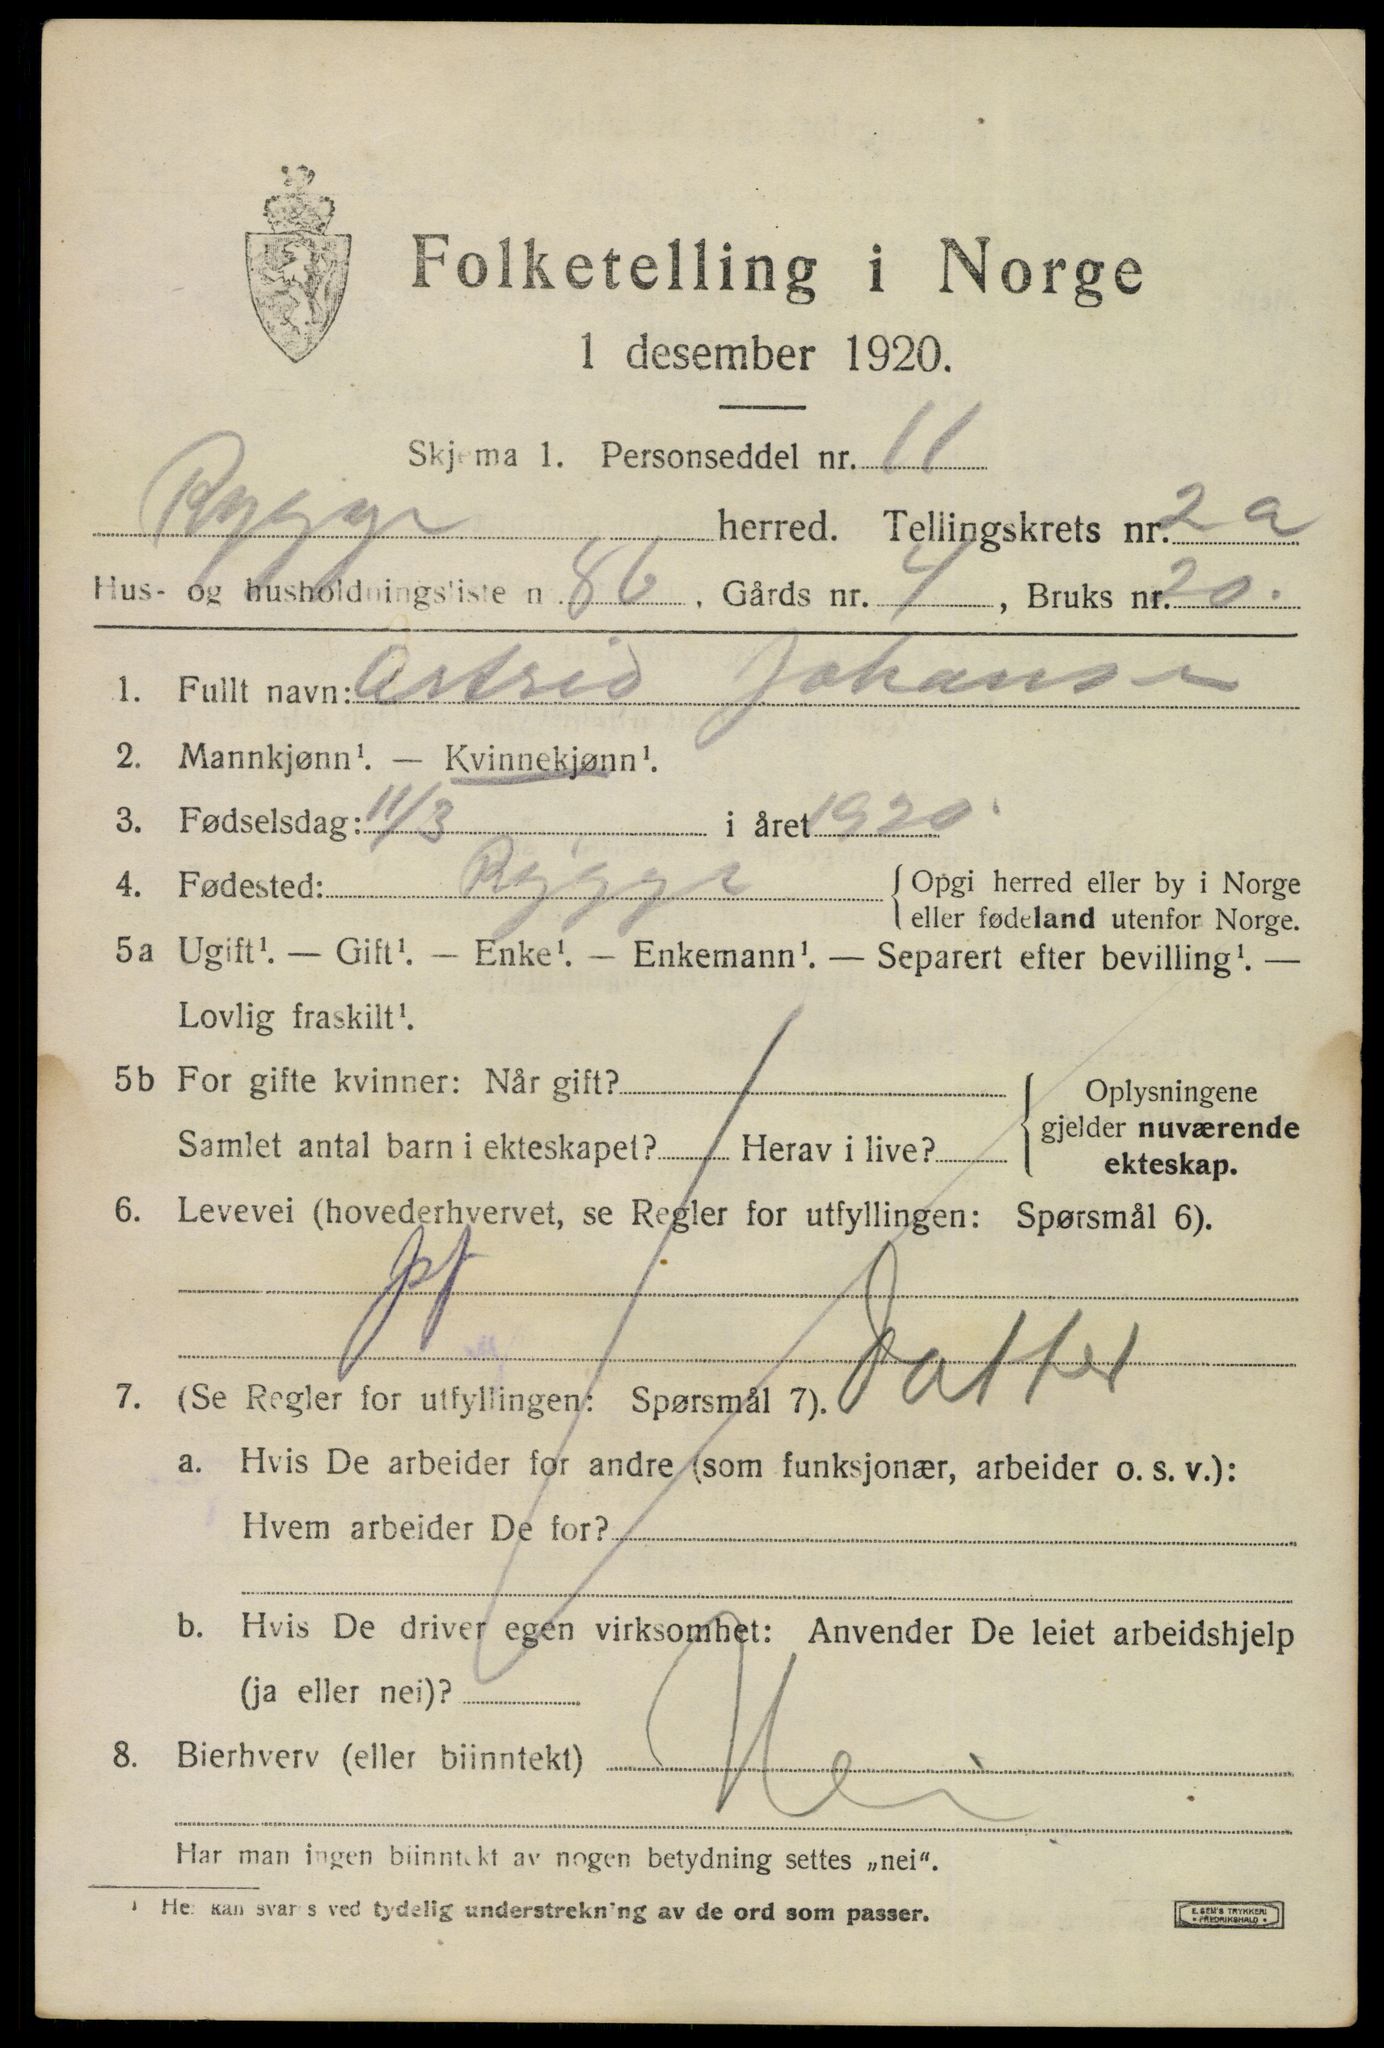 Folketelling i Norge
1 desember 1920.
Skjema 1. Personseddel nr. 11
Rygge herred. Tellingskrets nr. 2a
Hus- og husholdningsliste nr. 86, Gårds nr. 4, Bruks nr. 20.
1. Fullt navn: Astrid Johansen
2. Mannkjønn¹. — Kvinnekjønn¹.
3. Fødselsdag: 11/3 i året 1920.
4. Fødested: Rygge { Opgi herred eller by i Norge
eller fødeland utenfor Norge.
5a Ugift¹. — Gift¹. — Enke¹. — Enkemann¹. — Separert efter bevilling¹. —
Lovlig fraskilt¹.
5b For gifte kvinner: Når gift?
Samlet antal barn i ekteskapet? Herav i live?
{ Oplysningene
gjelder nuværende
ekteskap.
6. Levevei (hovederhvervet, se Regler for utfyllingen: Spørsmål 6).
Datter
7. (Se Regler for utfyllingen: Spørsmål 7).
a. Hvis De arbeider for andre (som funksjonær, arbeider o. s. v.):
Hvem arbeider De for?
b. Hvis De driver egen virksomhet: Anvender De leiet arbeidshjelp
(ja eller nei)?
8. Bierhverv (eller biinntekt) Nei
Har man ingen biinntekt av nogen betydning settes „nei“.
¹ Her kan svares ved tydelig understrekning av de ord som passer.
E. SEM'S TRYKKERI
• FREDRIKSHALD •